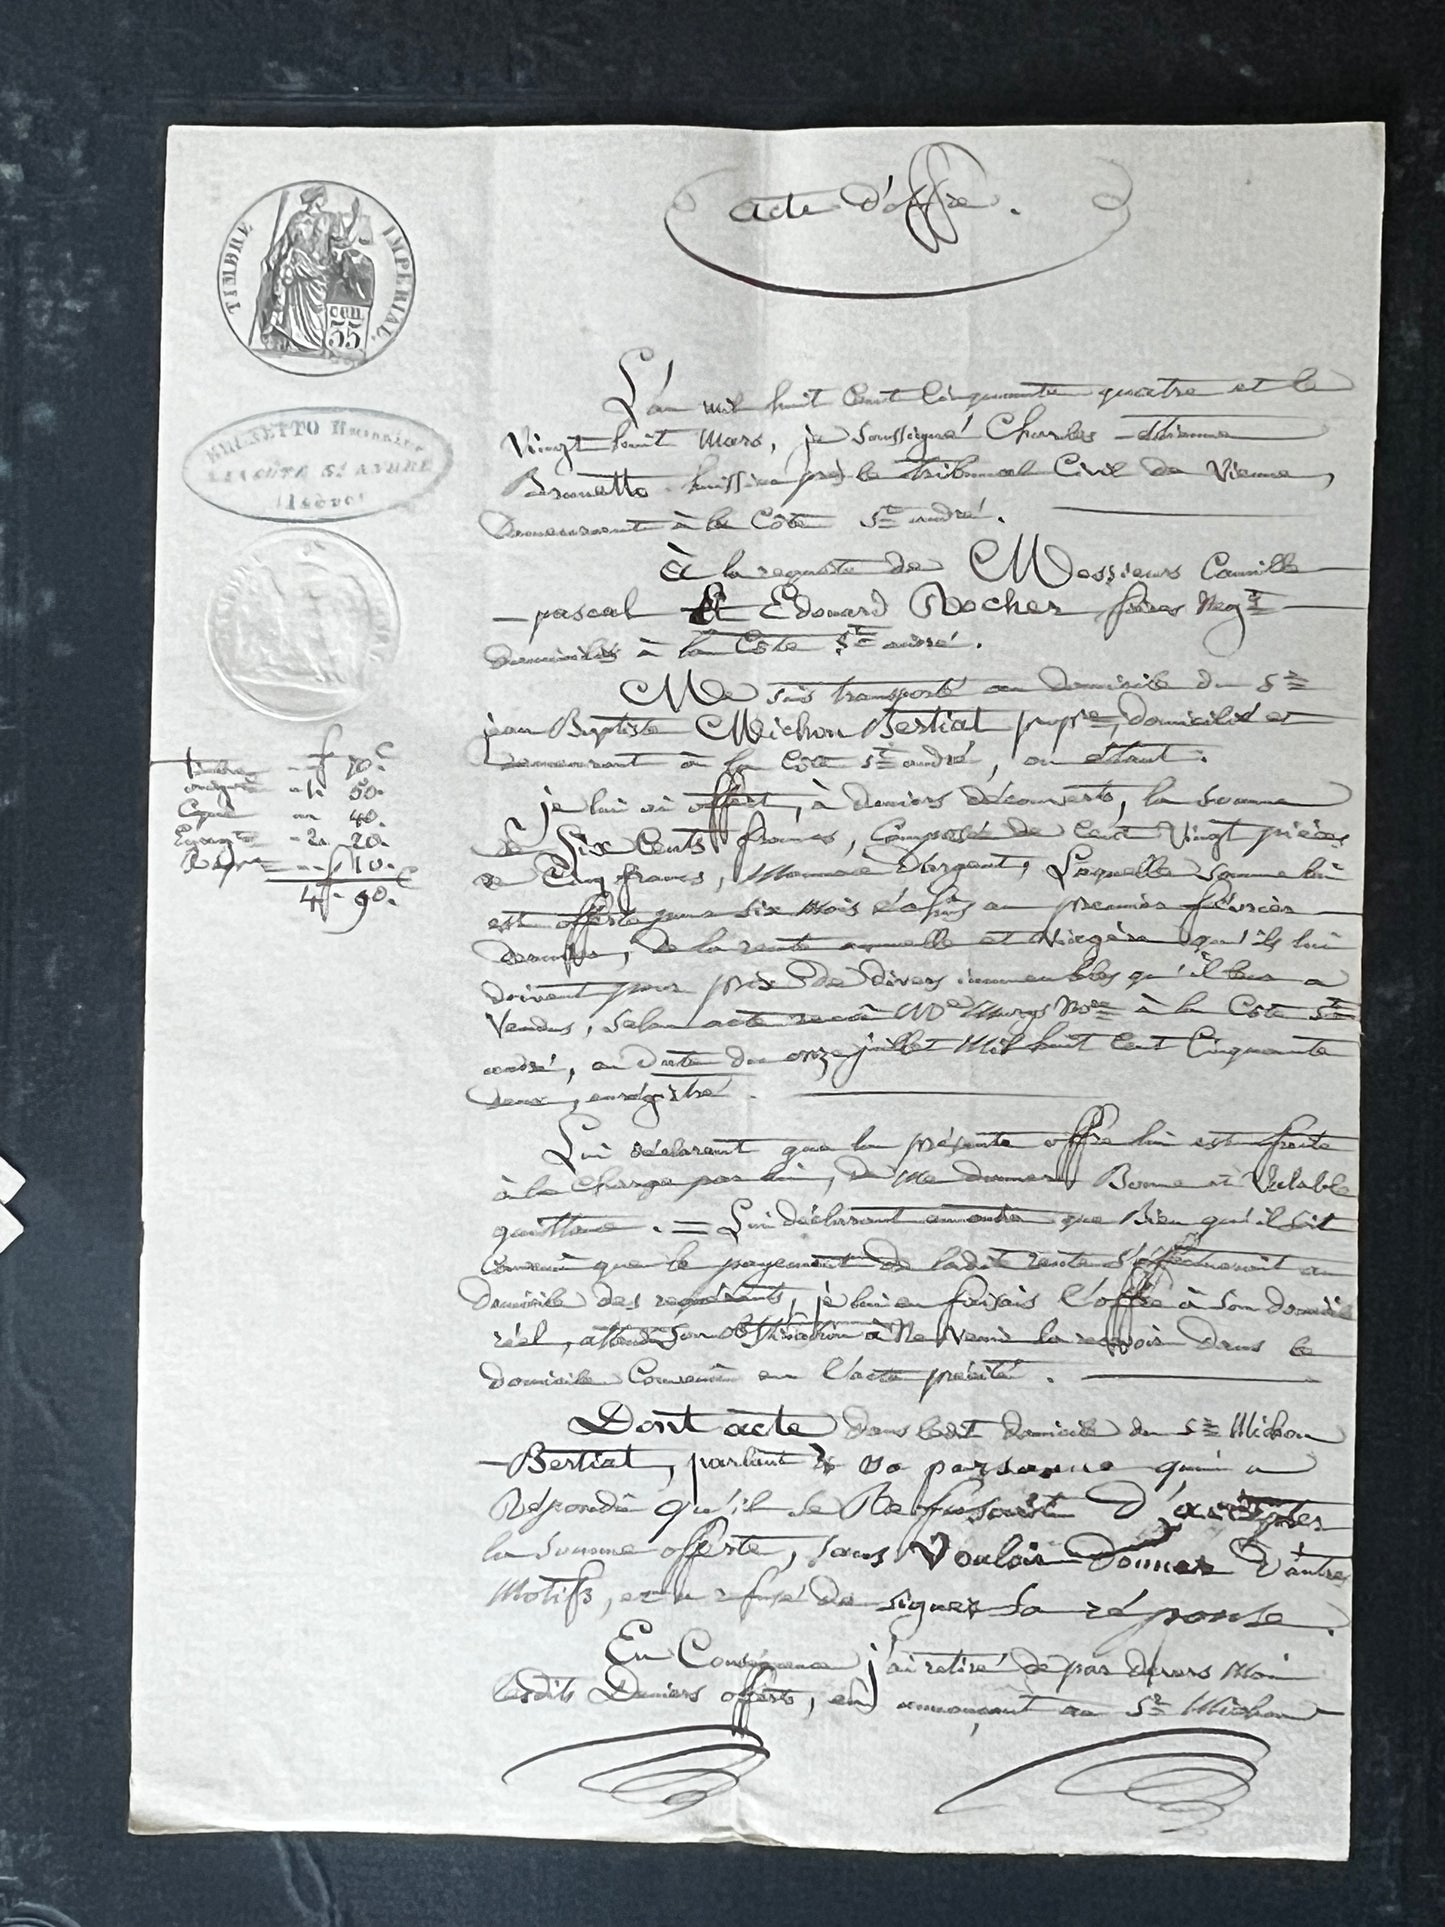 acte d'offre.
TIMBRE IMPERIAL.
CEN
35
BRUNETTO Huissier
LA CÔTE St ANDRÉ
(Isère)
L'an mil huit Cent Cinquante quatre et le
Vingt huit Mars, je soussigné Charles-étienne
Brunetto huissier près le tribunal Civil de Vienne,
Demeurant à la Côte St andré.
à la requête de Messieurs Camille
pascal Et Edouard Rocher frères Negts
domiciliés à la Côte St andré.
Me suis transporté au domicile du Sr
jean Baptiste Michon Bertiat propre, domicilié et
demeurant à la Côte St andré, où étant:
je lui ai offert, à deniers découverts, la somme
de Six Cents francs, Composée de Cent Vingt pièces
de Cinq francs, Monnaie d'argent, Laquelle somme lui
est offerte pour six mois échus au premier février
dernier, de la rente annuelle et Viagère qu'ils lui
doivent pour prix de divers immeubles qu'il leur a
Vendus, selon acte reçu Me Nore à la Côte St
andré, en date du onze juillet Mil huit Cent Cinquante
deux, enrégistré.
Lui déclarant que la présente offre lui est faite
à la Charge par lui, de me donner Bonne et Valable
quittance. = Lui déclarant en outre que Bien qu'il soit
Convenu que le payement de ladite rente s'éffectuerait au
domicile des requérants, je lui en faisais l'offre à son domicile
réel, attendu son obstination à Ne Venir la recevoir dans le
domicile Convenu en l'acte précité.
Dont acte dans ledit domicile du Sr Michon
Bertiat, parlant à sa personne qui a
Répondu qu'il se Refusait D'accepter
la somme offerte, sans Vouloir Donner d'autres
Motifs, et a refusé de signer sa réponse.
En Conséquence j'ai retiré de par devers Moi
lesdits Deniers offerts, en annonçant au Sr Michon
timbre f 70c
original 1. 50.
Copie 40.
Enregte 2. 20.
Répre 10.
4f. 90.c